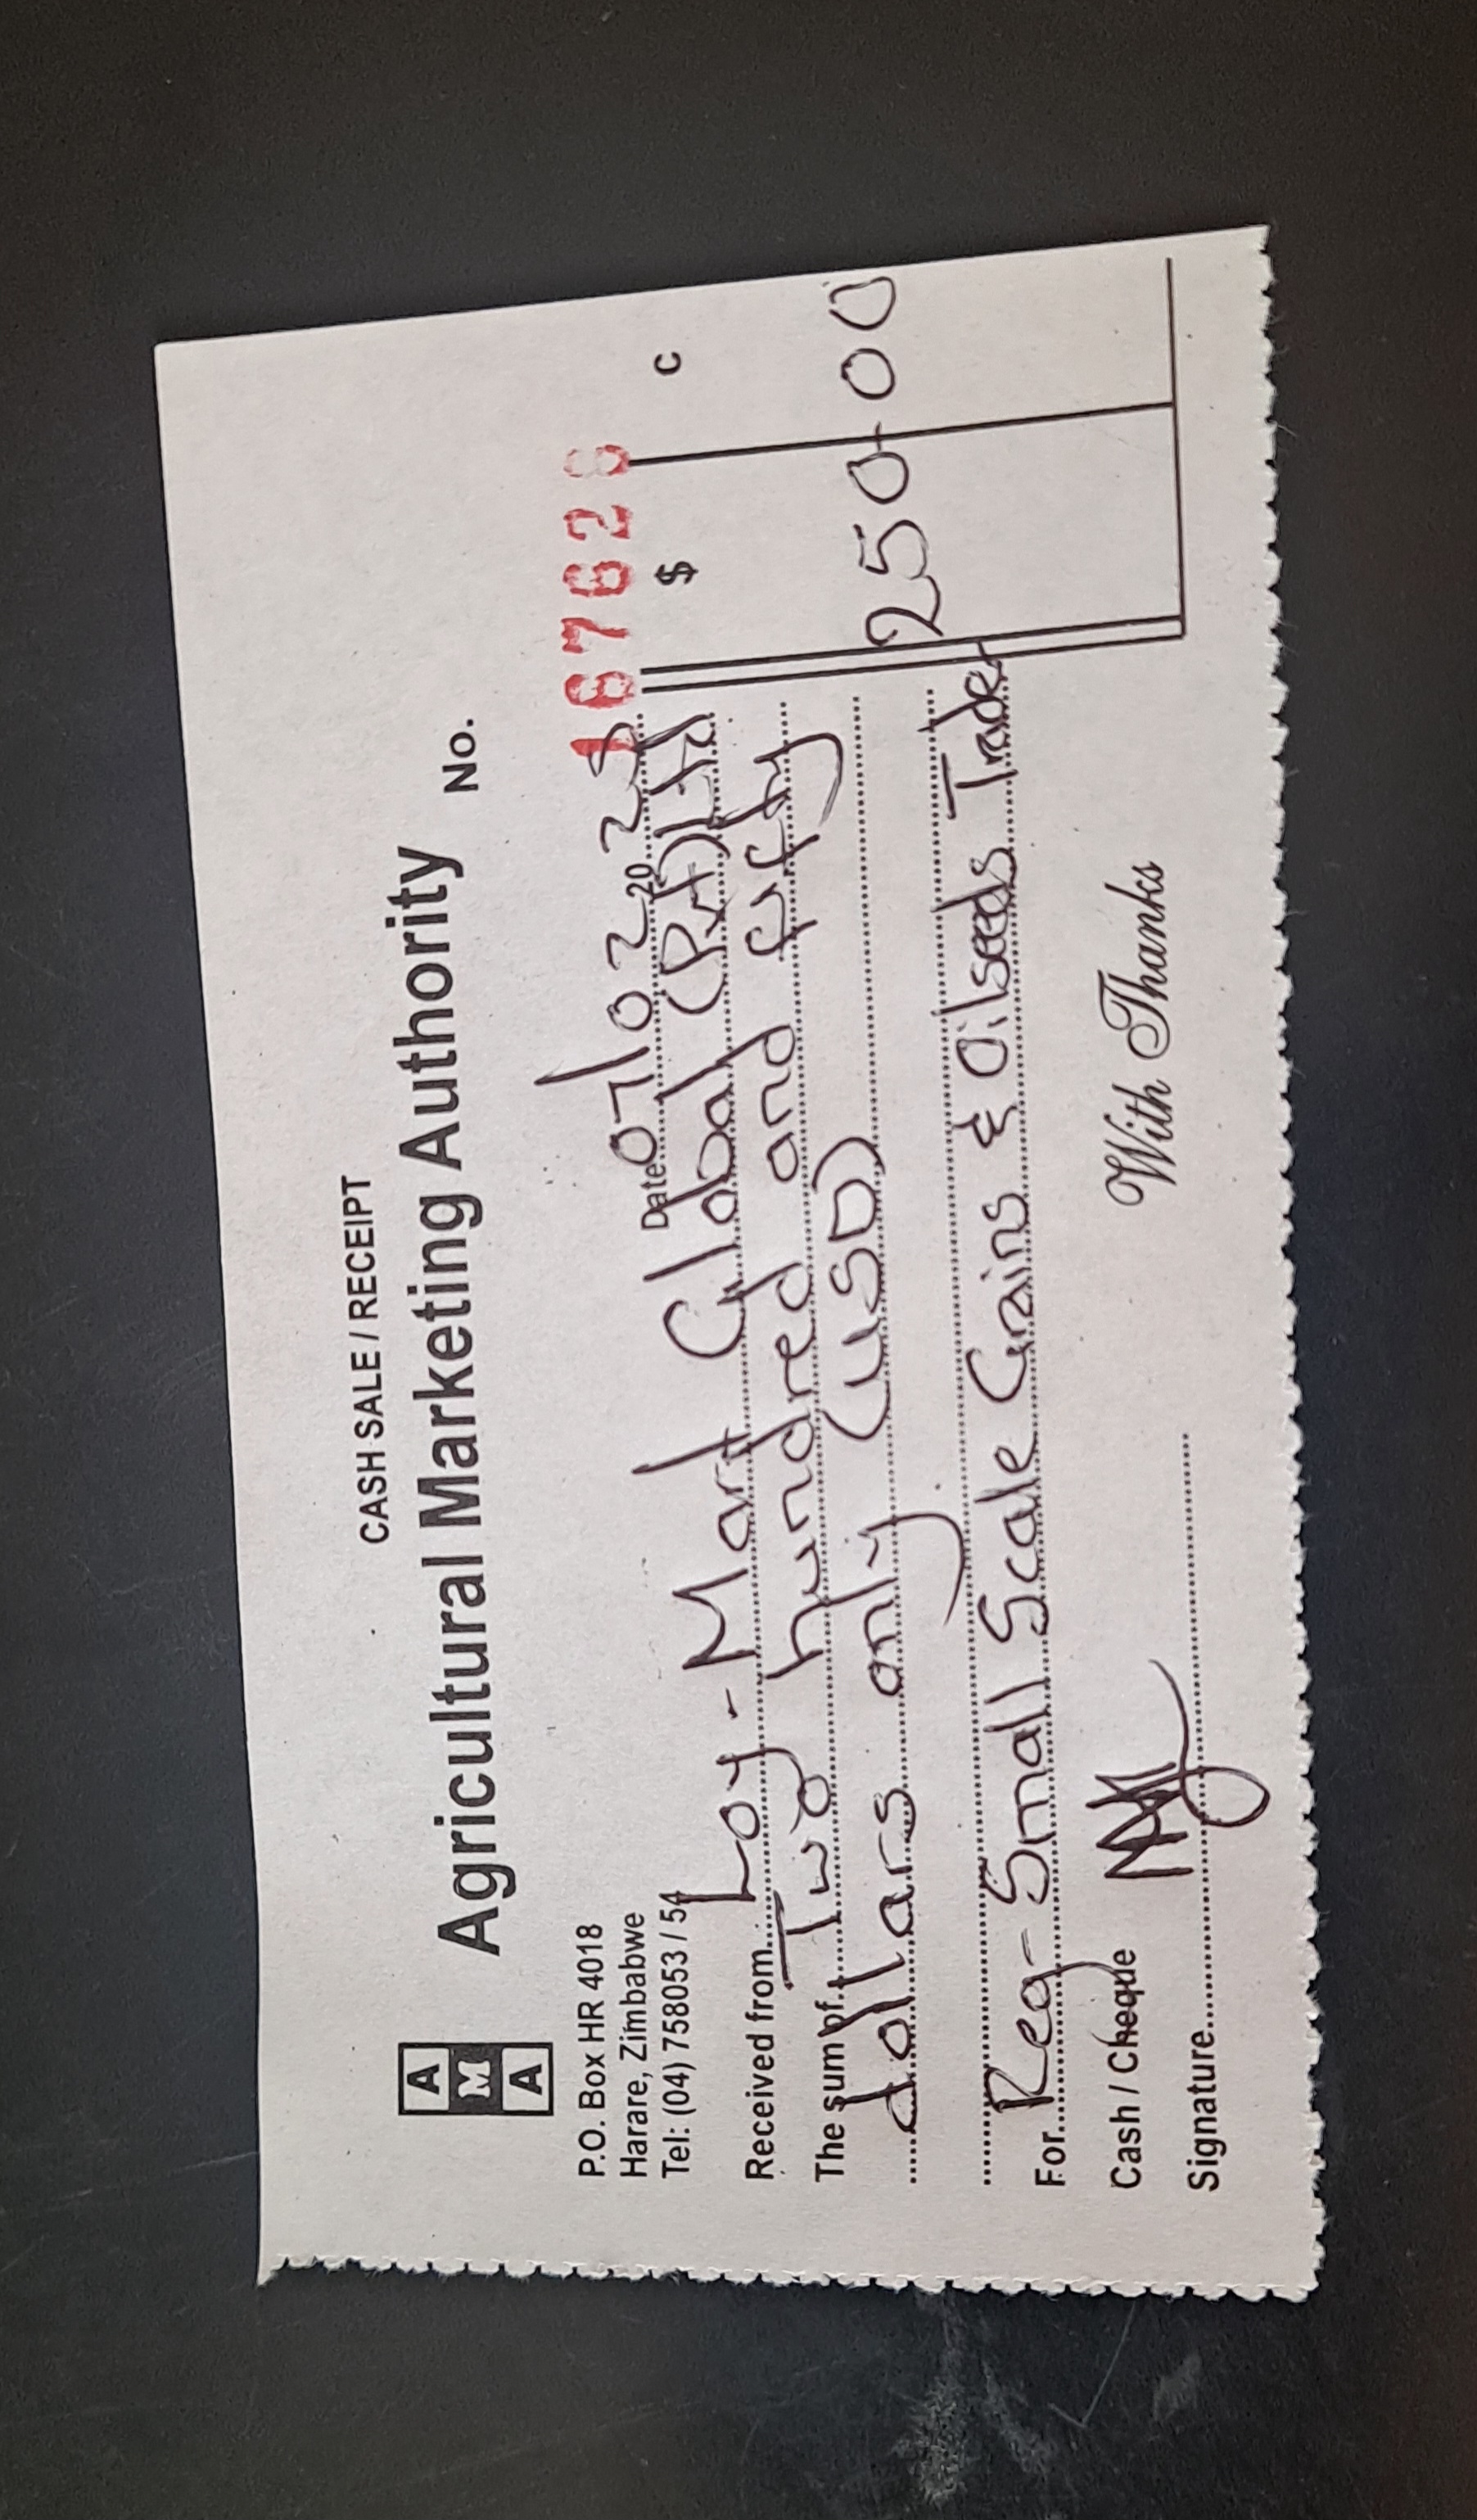 CASH SALE / RECEIPT
A
M
A
Agricultural Marketing Authority
No.
167626
P.O. Box HR 4018
Harare, Zimbabwe
Tel: (04) 758053 / 54
Date 07/02 2023
$ c
Received from Loy-Mart Global (Pvt) Ltd
The sum of Two hundred and fifty
dollars only (USD)
250-00
For Reg - Small Scale Grains & Oilseeds Trader
Cash / Cheque
Signature
With Thanks